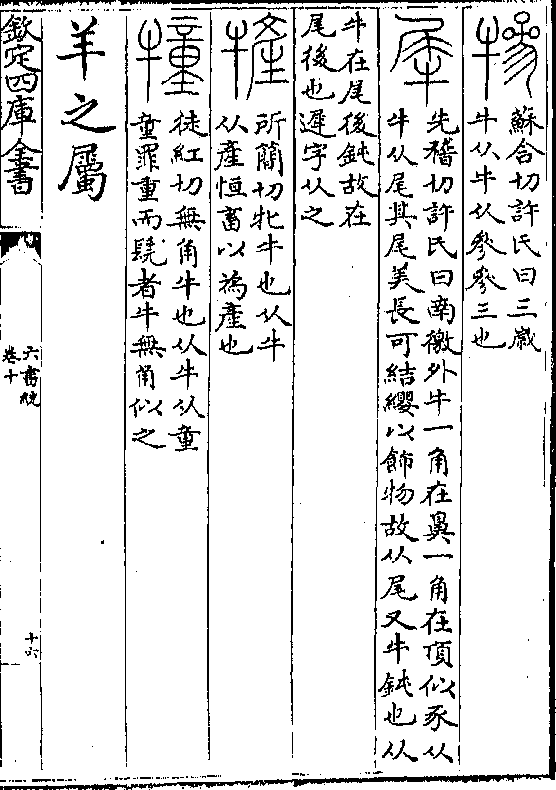 犙
蘇含切許氏曰三歲
牛从牛从參參三也
犀
先稽切許氏曰南徼外牛一角在鼻一角在頂似豕从
牛从尾其尾美長可結纓以飾物故从尾又牛鈍也从
牛在尾後鈍故在
尾後也遲字从之
㹌
所簡切牝牛也从牛
从產恒畜以為產也
犝
徒紅切無角牛也从牛从童
童罪重而髡者牛無角似之
羊之屬
欽定四庫全書
六書統
卷十
十六